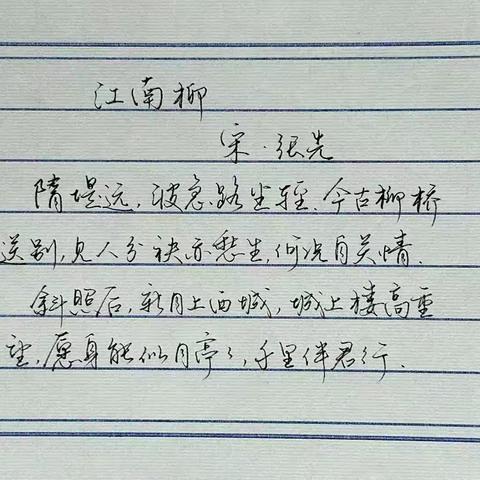 江南柳
宋·张先
隋堤远,波急路尘轻.今古柳桥
送别,见人分袂亦愁生,何况自关情.
斜照后,新月上西城,城上楼高重
望,愿身能似月亭々,千里伴君行.